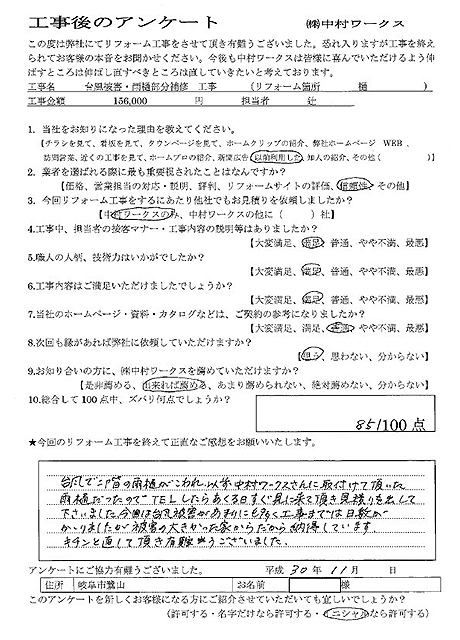 工事後のアンケート ㈱中村ワークス
この度は弊社にてリフォーム工事をさせて頂き有難うございました。恐れ入りますが工事を終え
られてお客様の本音をお聞かせください。今後も中村ワークスは皆様に喜んでいただけるよう伸
ばすところは伸ばし直すべきところは直していきたいと考えております。
工事名 台風被害・雨樋部分補修 工事 (リフォーム箇所 樋 )
工事金額 156,000 円 担当者 辻
1. 当社をお知りになった理由を教えてください。
【チラシを見て、看板を見て、タウンページを見て、ホームクリップの紹介、弊社ホームページ WEB、
訪問営業、近くの工事を見て、ホームプロの紹介、新聞広告、以前利用した、知人の紹介、その他( )】
2. 業者を選ばれる際に最も重要視されたことはなんですか?
【価格、営業担当の対応・説明、評判、リフォームサイトの評価、信頼性、その他】
3. 今回リフォーム工事をするにあたり他社でもお見積りを依頼しましたか?
【中村ワークスのみ、中村ワークスの他に( )社】
4.工事中、担当者の接客マナー・工事内容の説明等はありましたか?
【大変満足、満足、普通、やや不満、最悪】
5.職人の人柄、技術力はいかがでしたか?
【大変満足、満足、普通、やや不満、最悪】
6.工事内容はご満足いただけましたでしょうか?
【大変満足、満足、普通、やや不満、最悪】
7.当社のホームページ・資料・カタログなどは、ご契約の参考になりましたか?
【大変満足、満足、普通、やや不満、最悪】
8.次回も縁があれば弊社に依頼していただけますか?
【思う、思わない、分からない】
9.お知り合いの方に、㈱中村ワークスを薦めていただけますか?
【是非薦める、出来れば薦める、あまり薦められない、絶対薦めない、分からない】
10.総合して100点中、ズバリ何点でしょうか?
85/100点
★今回のリフォーム工事を終えて正直なご感想をお願いいたします。
台風で二階の雨樋がこわれ、以前中村ワークスさんに取付けて頂いた
雨樋だったのでTELしたらあくる日すぐ見に来て頂き見積りを出して
下さいました。今回は台風被害があまりにも多く工事までは日数が
かかりましたが被害の大きかった家からだから納得しています。
キチンと直して頂き有難うございました。
アンケートにご協力有難うございました。 平成 30年 11月 日
住所 岐阜市鷺山 お名前 様
このアンケートを新しくお客様になる方にご紹介させていただいても宜しいでしょうか?
(許可する・名字だけなら許可する・イニシャルなら許可する)